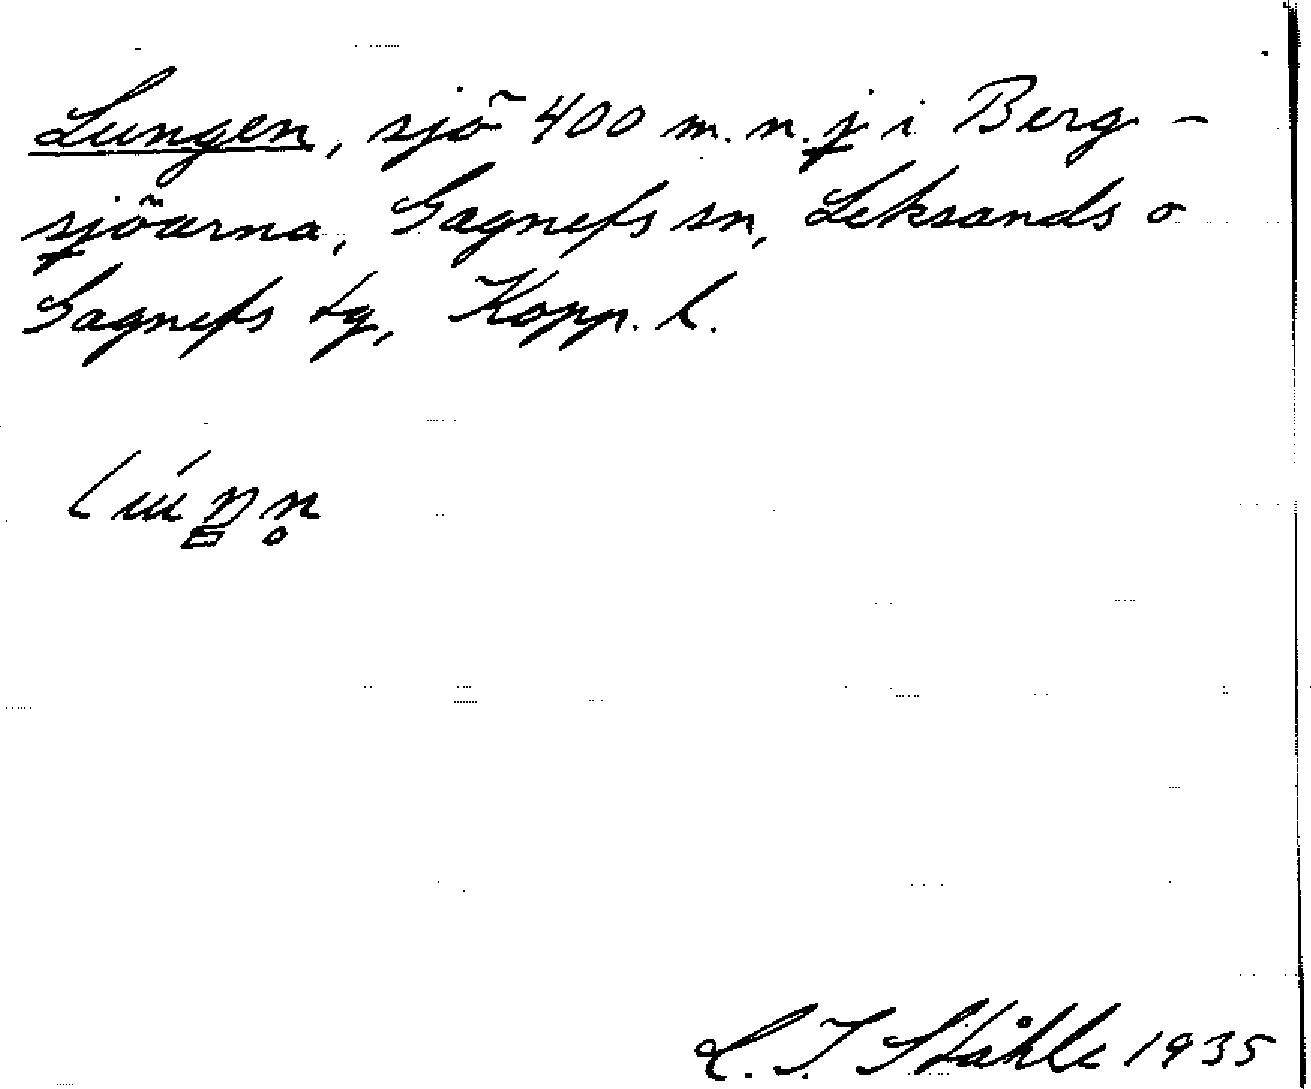 Lungen, sjö 400 m. n. j i Berg-
sjöarna, Gagnefs sn, Leksands o
Gagnefs tg, Kopp. l.
C. I. Ståhle 1935